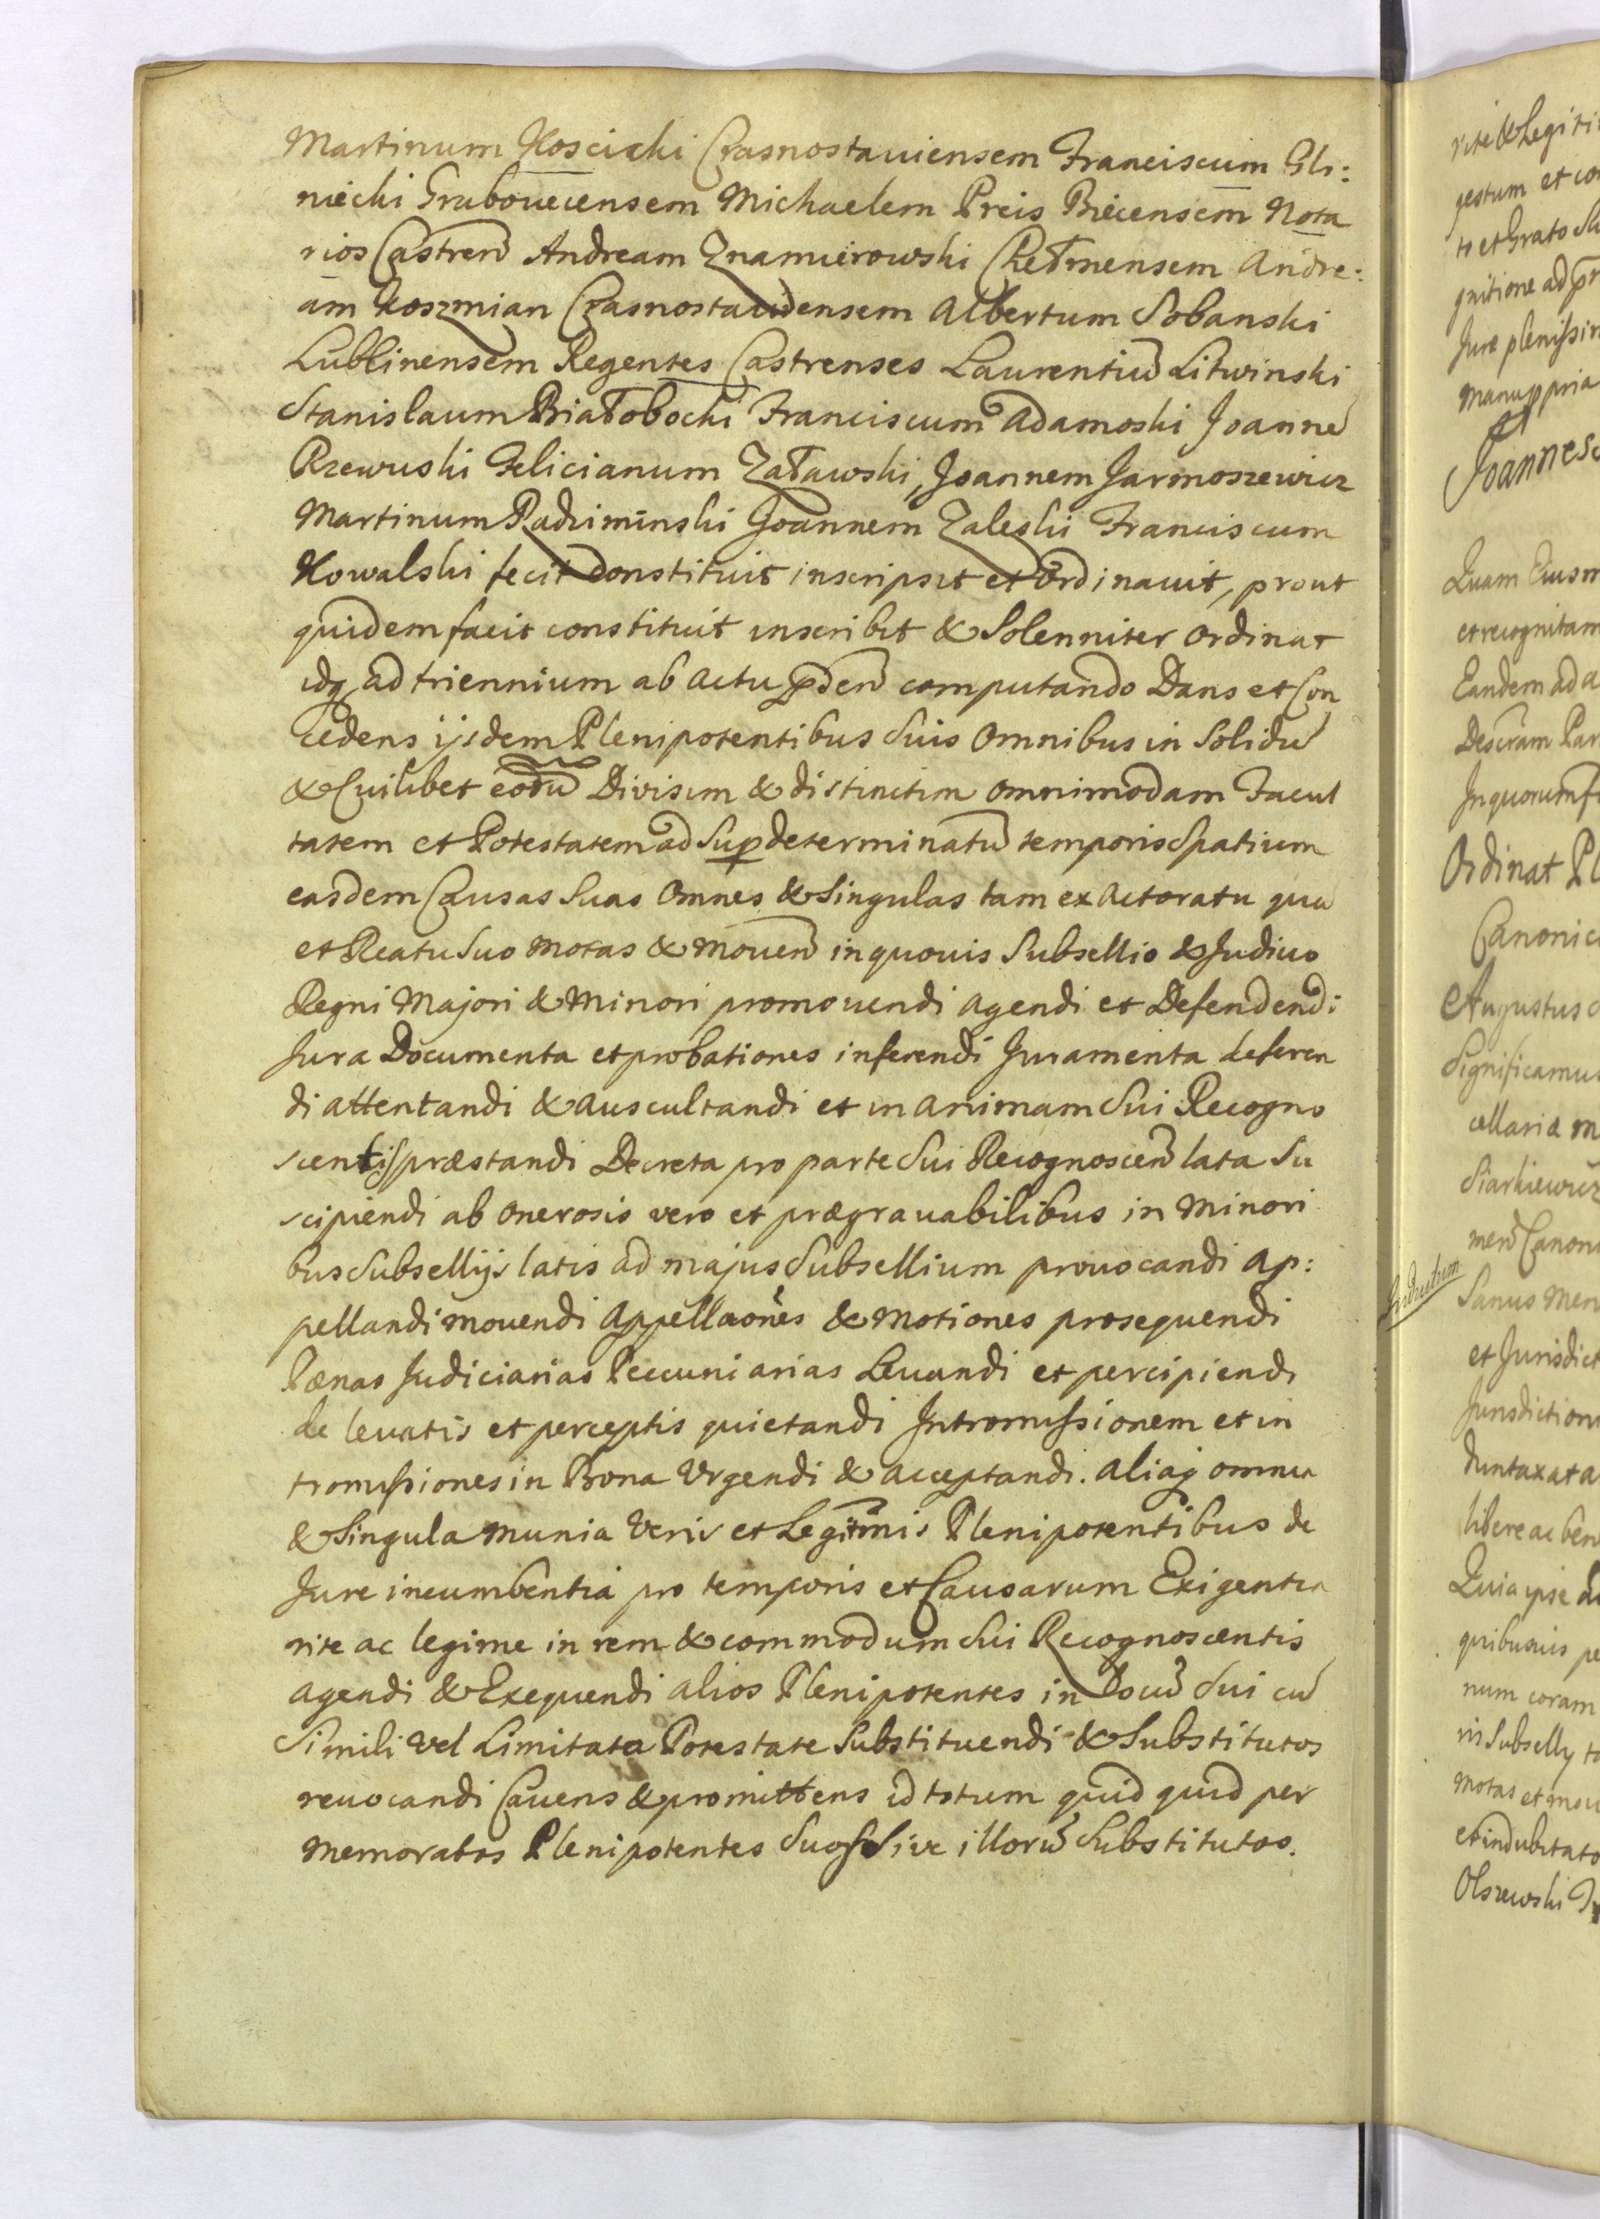 Martinum Koscicki Crasnostauiensem Franciscum Gli:
niecki Grabouecensem Michaelem Preis Biecensem Nota
rios Castren Andream Znamierowski Chełmensem Andre:
am Koszmian Crasnostaviensem Albertum Sobanski
Lublinensem Regentes Castrenses Laurentiu Litwinski
Stanislaum Białobocki Franciscum Adamoski Joanne
Rzewuski Felicianum Załawski, Joannem Jarmoszewicz
Martinum Radziminski Joannem Zaleski Franciscum
Kowalski fecit Constituit inscripsit et Ordinauit, prout
quidem facit constituit inscribit & Solenniter Ordinat
idq ad triennium ab actu pnden computando Dans et Con
cedens ijsdem Plenipotentibus Suis Omnibus in Solidu
& Cuilibet eoru Divisim & distinctim omnimodam Facul
tatem et Potestatem ad Sup determinatu temporis Spatium
easdem Causas Suas Omnes & Singulas tam ex Actoratu qua
et Reatu Suo motas & mouen in quouis Subsellio & Judicio
Regni Majori & Minori promouendi agendi et Defendendi
Jura Documenta et probationes inferendi Juramenta deferen
di attentandi & auscultandi et in animam Sui Recogno
scentis præstandi Decreta pro parte Sui Recognoscen lata Su
scipiendi ab Onerosis vero et prægrauabilibus in Minori
bus Subsellijs latis ad majus Subsellium prouocandi ap:
pellandi mouendi Appellaones & Motiones prosequendi
Pænas Judiciarias Peccuniarias Leuandi et percipiendi
de leuatis et perceptis quietandi Intromissionem et in
tromissiones in Bona Vrgendi & acceptandi. Aliaq omnia
& Singula munia Veris et Legitimis Plenipotentibus de
Jure incumbentia pro temporis et Causarum Exigentia
rite ac legime in rem & commodum Sui Recognoscentis
agendi & Exequendi alios Plenipotentes in Locu Sui cu
Simili vel Limitata Potestate Substituendi & Substitutos
reuocandi Cauens & promittens id totum quid quid per
memoratos Plenipotentes Suos Sive illoru Substitutos.
rite & Legiti
gestum et con
to et Grato Su
gnitione ad pr
Jure plenissim
manu ppria
Joannes
Quam Eiusm
et recognitam
Eandem ad a
Descram Par
In quorum f
Ordinat Pl
Canonic
Augustus
Significamus
cellariæ m
Siarkiewicz
men Canoni
Indultum
Sanus Men
et Jurisdict
Jurisdictioni
duntaxat a
libere ac ben
Quia ipse
quibusuis pe
num coram
vis Subselly
motas et mou
et indubitato
Olszewski